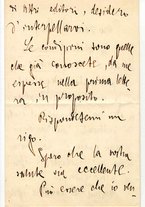 di altri editori, desidero
d'interpellarvi.
Le condizioni sono quelle
che già conoscete, da me
esposte nella prima lette
ra in proposito.
Rispondetemi un
rigo.
Spero che la vostra
salute sia eccellente.
Può essere che io